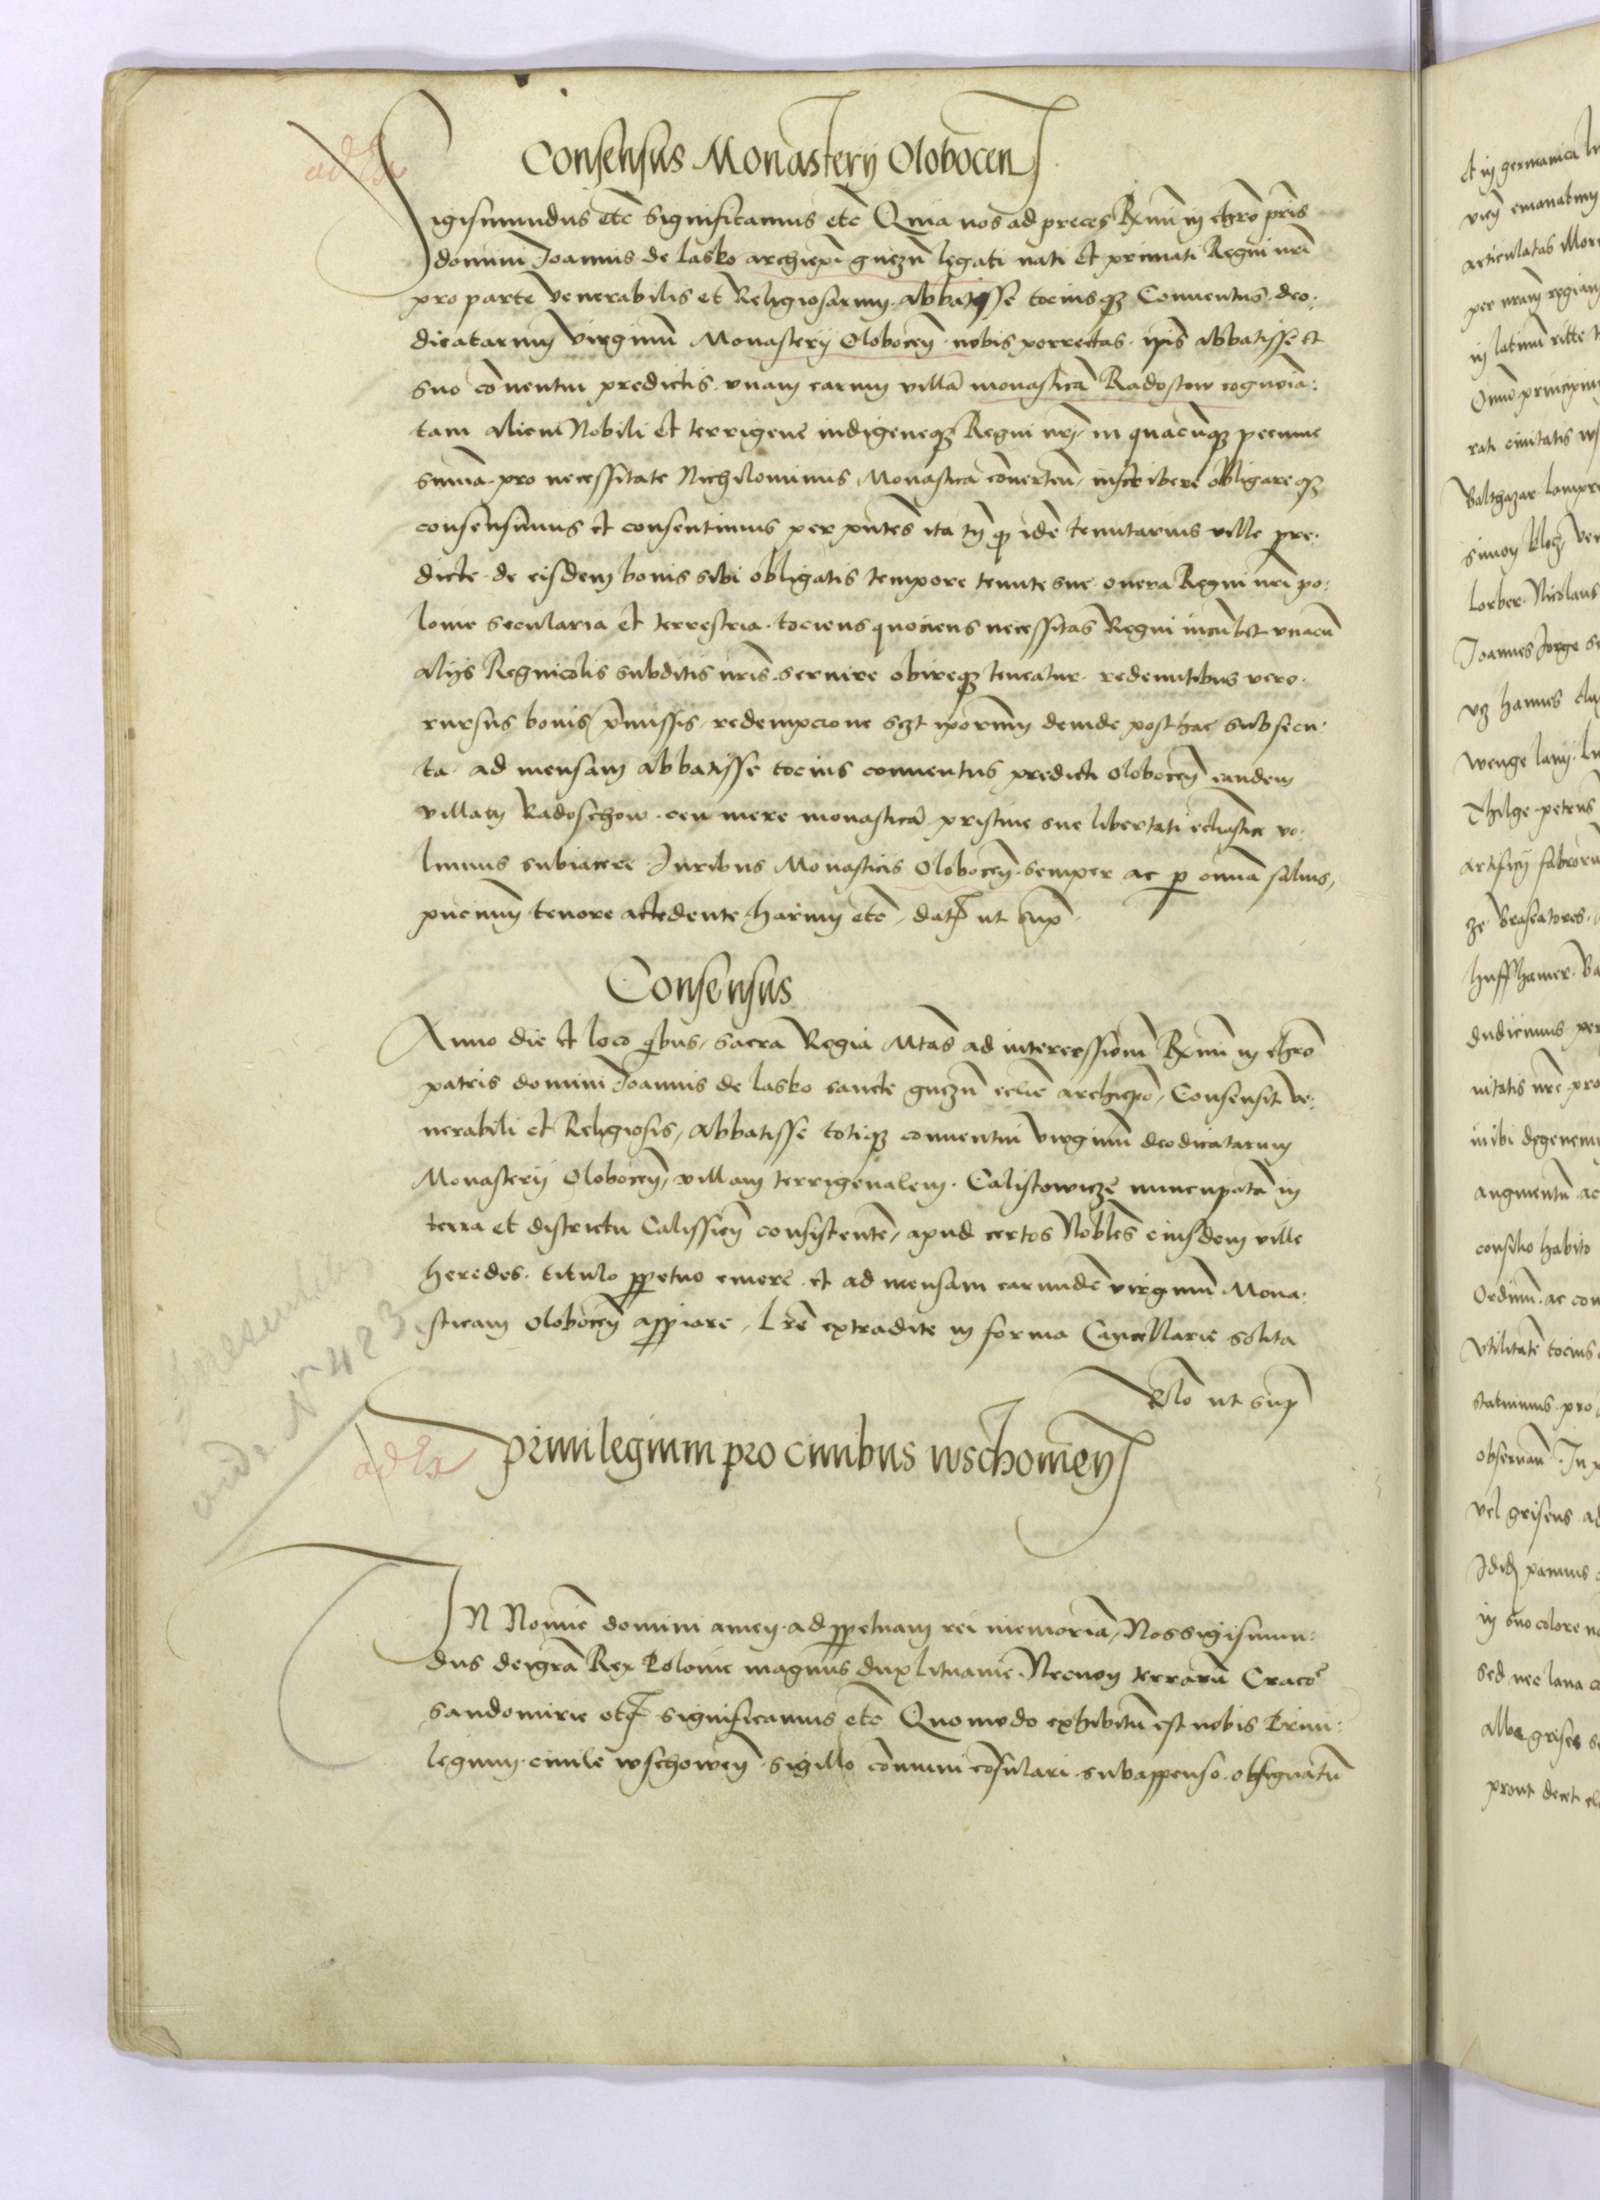 Consensus Monasterij Olobocen
Sigismundus etc Significamus etc Quia nos ad preces Rxmi in chro pris
domini Joannis de lasko archiepi gnezn legati nati et primati Regni nri
pro parte venerabilis et Religiosarum abbatisse tociusqz Conuentus deo
dicatarum virginum Monasterij Olobocen nobis porrectas ipis abbatisse et
suo conuentui predictis vnam earum villa monastica Radostow cognoia
tam alicui Nobili et terrigene indigeneqz Regni nri in quacuqz pecunie
suma pro necessitate Nichilominus Monastica conuerten inscribere obligareqz
consensimus et consentimus per pntes ita tn q ide tenutarius ville pre
dicte de eisdem bonis sibi obligatis tempore tenute sue onera Regni nri po
lonie secularia et terrestria tociens quociens necessitas Regni incubet vnacu
alijs Regnicolis subditis nris seruire obireqz teneatur redemtibus vero
rursus bonis pmissis redempcione szt iporum deinde post hac subsecu
ta ad mensam abbatisse tocius conuentus predicti Olobocen eandem
villam Radoschow ceu mere monastica pristine sue libertati ecliastice vo
lumus subiacere Juribus Monasticis Olobocen semper ac p omnia saluis
pncium tenore attedente harum etc dat ut sup
Consensus
Anno die et loco qbus sacra Regia Mtas ad intercessione Rxmi in chro
patris domini Joannis de lasko sancte gnezn eclie archiepo Consensit ve
nerabili et Religiosis abbatisse totiqz conuentui virginum deodicatarum
Monasterij Olobocen villam terrigenalem Calistowicze nuncupata in
terra et districtu Calissien consistente apud certos Nobles eiusdem ville
heredes titulo ppetuo emere et ad mensam earunde virginum Mona
sticam Olobocen appiare Lre extradite in forma Cancellarie solita
Rlo ut sup
ad
priuilegium pro ciuibus wschouien
In Nomine domini amen ad ppetuam rei memoria Nos sigismun
dus dei gra Rex Polonie magnus dux lituanie Necnon terraru Craco
Sandomirie etc significamus etc Quomodo exhibitu est nobis Priui
legium ciuile wschowen sigillo comuni cosulari subappenso obsignatu
vide N 483
et in germanica
vicz emanatum
articulatas
per nram regiam
in latinu ritte
Omni principiu
rati ciuitatis
Balthazar lampre
simon
lorber Nicolaus
Joannes Jorge
vz hannes
wenge
Thilge petrus
artificij fabroru
ze braseatores
huffhamer
dudicimus per
uitatis nre pro
inibi degenem
augmentu ac
consilio habito
Ordinu ac con
vtilitate tocius
statuimus pro
obseruan In
vel griseus ad
pannus
in suo colore
sed nec lana
albe grisee
prout decet